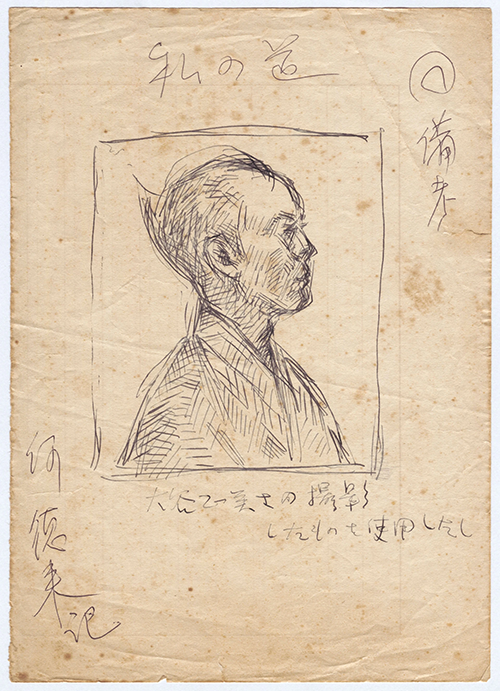 私の道
備考
大谷乙美さの撮影
したものを使用したし
何德来記